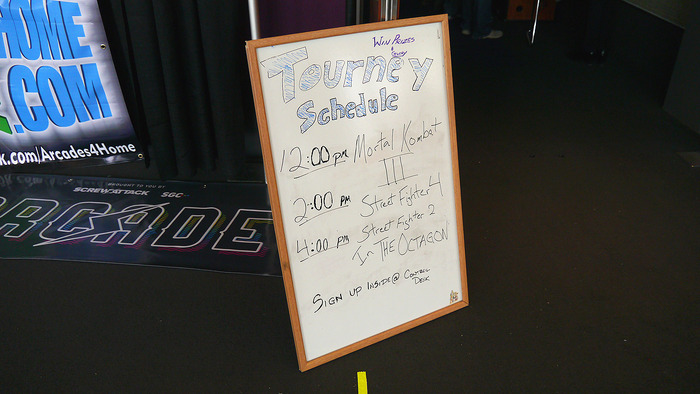 HOME
.COM
k.com/Arcades4Home
BROUGHT TO YOU BY
SCREWATTACK SGC
ARCADE
WIN PRIZES
Tourney
Schedule
12:00 pm Mortal Kombat
III
2:00 PM Street Fighter 4
4:00 PM Street Fighter 2
In THE OCTAGON
SIGN UP INSIDE @ CONTROL
DECK